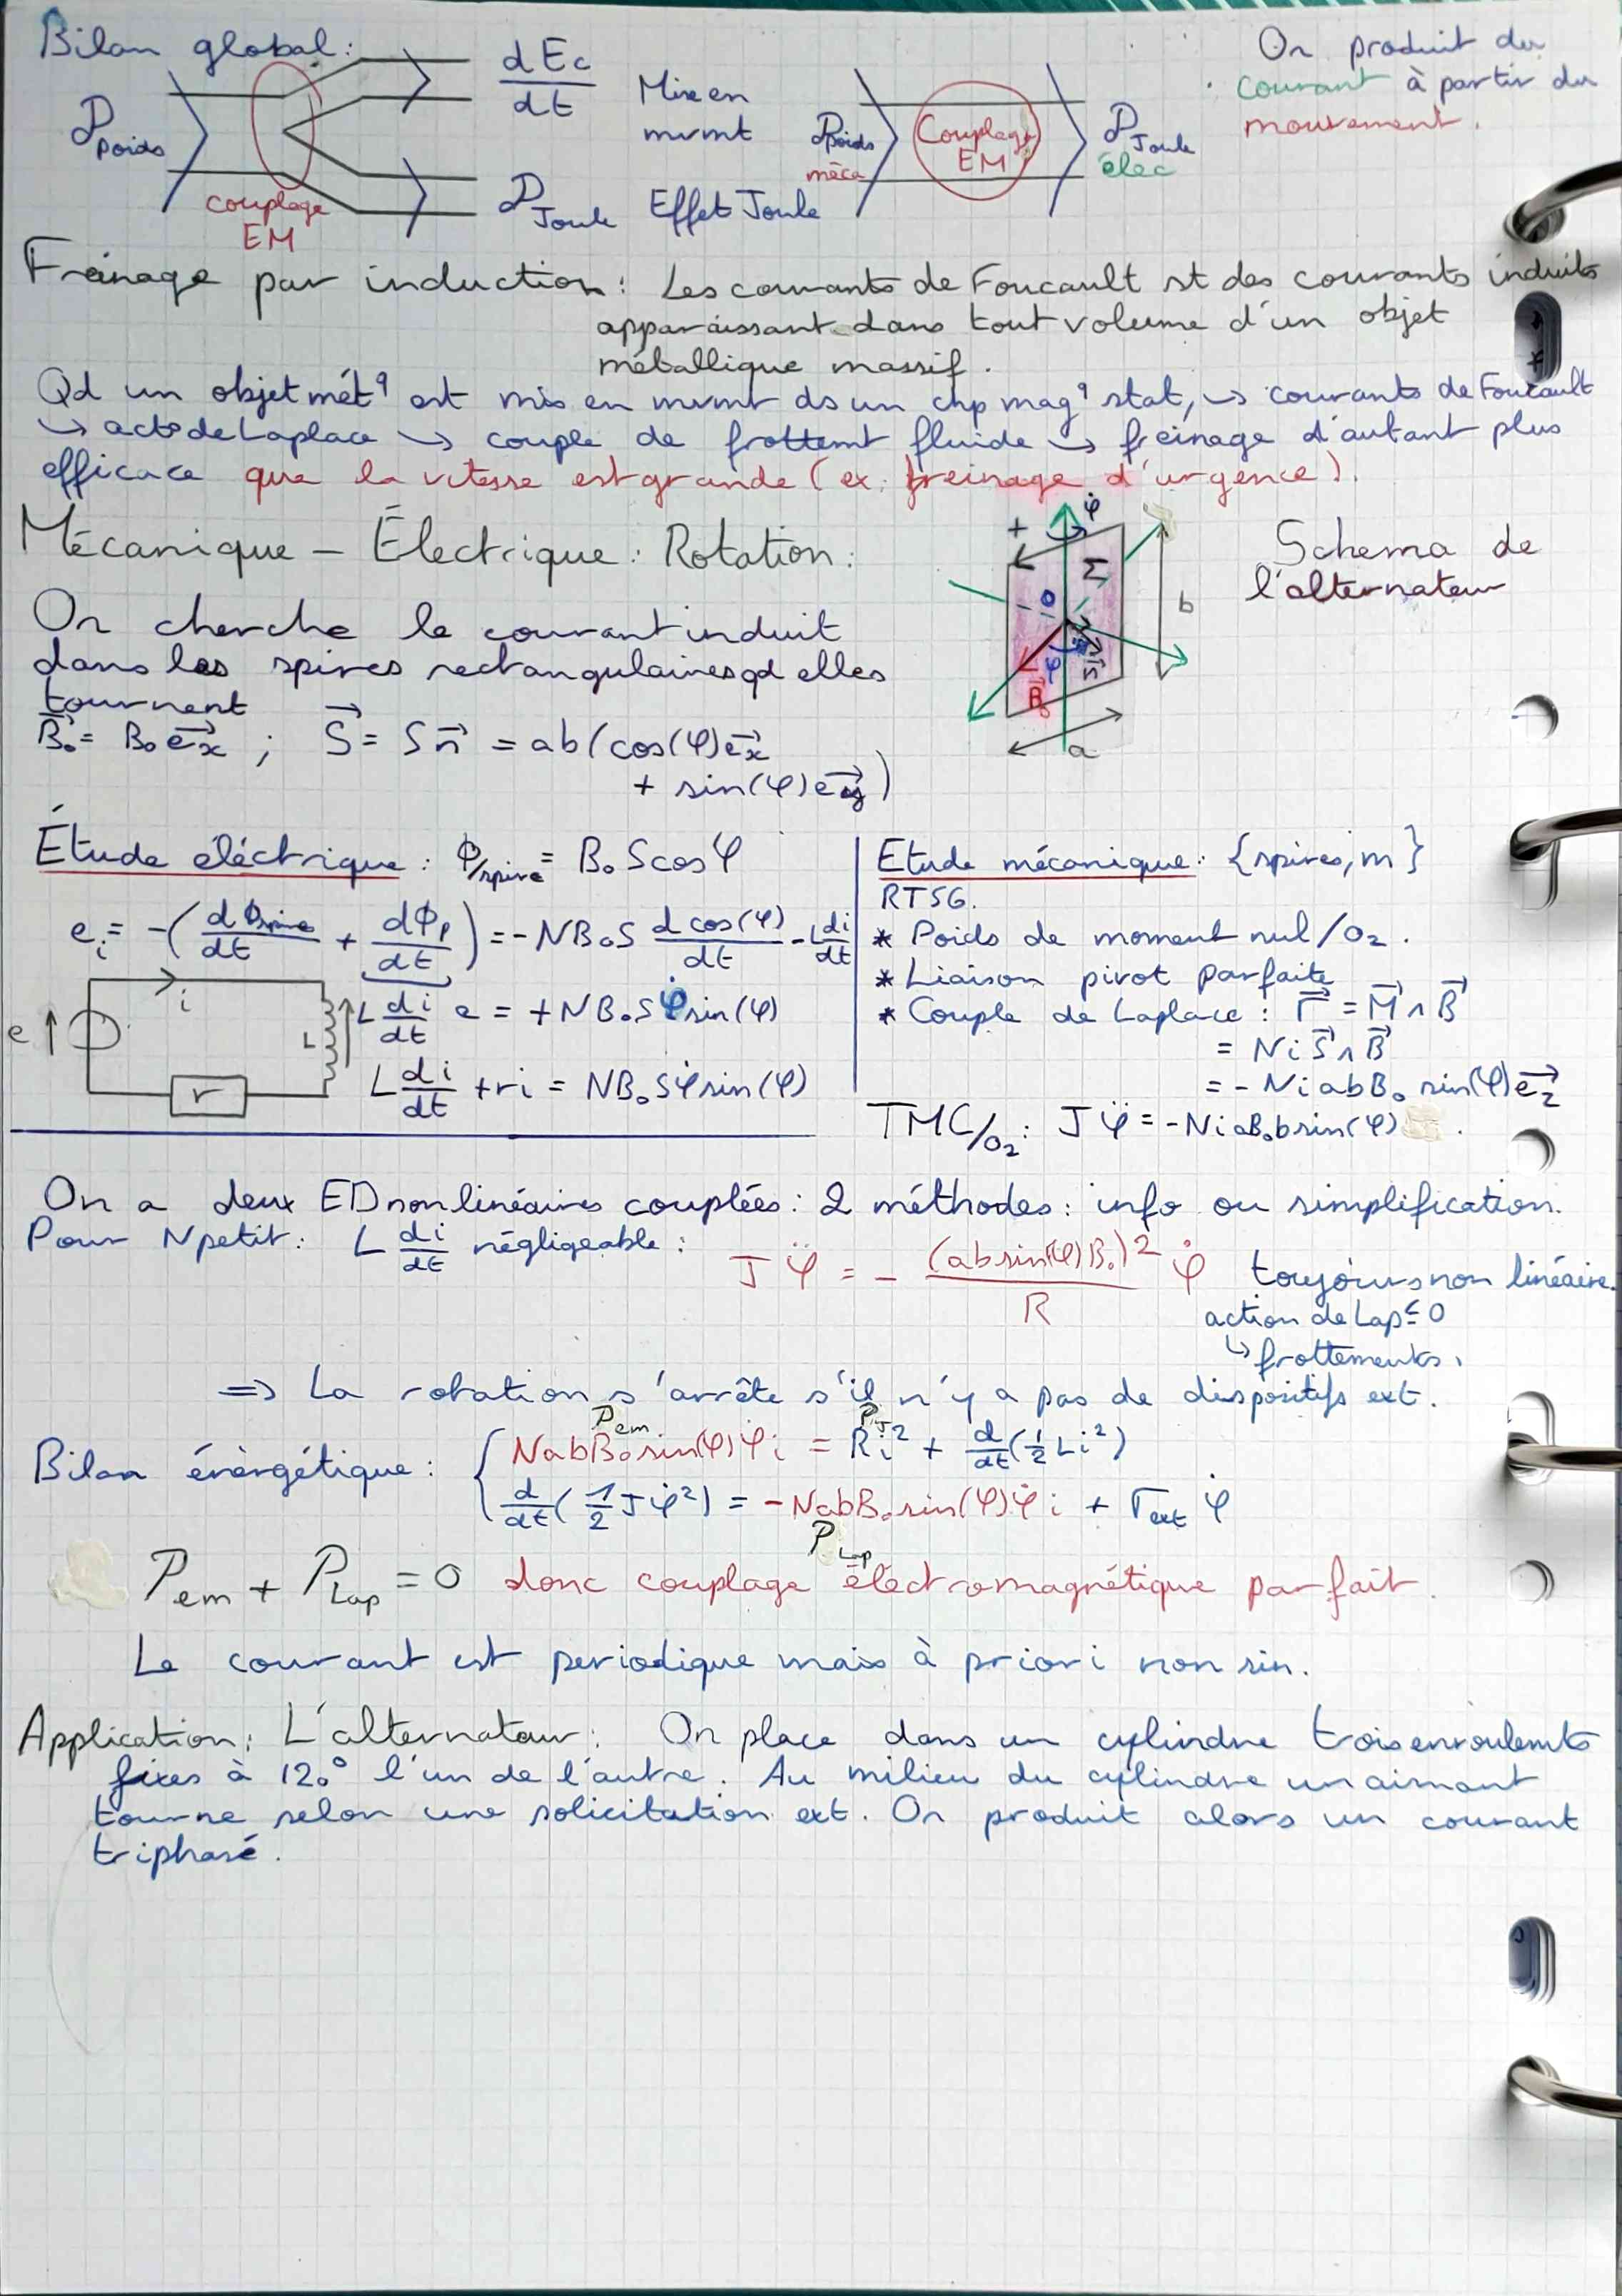 Bilan global:
𝒫poids
couplage
EM
dEc/dt Mise en
mvmt
𝒫Joule Effet Joule
𝒫poids
méca
Couplage
EM
𝒫Joule
élec
On produit du
courant à partir du
mouvement.
Freinage par induction: Les courants de Foucault st des courants induits
apparaissant dans tout volume d'un objet
métallique massif.
Qd un objet mét^q est mis en mvmt ds un chp mag^q stat, ↪ courants de Foucault
↪ act° de Laplace ↪ couple de frottemt fluide ↪ freinage d'autant plus
efficace que la vitesse est grande (ex: freinage d'urgence).
Mécanique – Électrique: Rotation:
On cherche le courant induit
dans les spires rectangulaires qd elles
tournent
B₀→ = B₀ex→ ; S→ = Sn→ = ab(cos(φ)ex→
+ sin(φ)ey→)
+ φ̇ Σ O φ B₀→ n→ a b
Schema de
l'alternateur
Étude éléctrique: Φ/spire = B₀Scosφ
eᵢ = -(dΦspire/dt + dΦp/dt) = -NB₀S d cos(φ)/dt - Ldi/dt
e i r L
L di/dt e = +NB₀Sφ̇sin(φ)
L di/dt + ri = NB₀Sφ̇sin(φ)
Etude mécanique: {spires, m}
RTSG.
* Poids de moment nul/Oz.
* Liaison pivot parfaite
* Couple de Laplace: Γ→ = M→ ∧ B→
= NiS→ ∧ B→
= - NiabB₀ sin(φ)ez→
TMC/Oz: Jφ̈ = -NiaB₀bsin(φ).
On a deux ED non linéaires couplées: 2 méthodes: info ou simplification.
Pour N petit: L di/dt négligeable: Jφ̈ = - (absin(φ)B₀)²/R φ̇ toujours non linéaire.
action de Lap ≤ 0
↪ frottements.
⇒ La rotation s'arrête s'il n'y a pas de dispositifs ext.
Bilan énèrgétique: { NabB₀sin(φ)φ̇i = Ri² + d/dt(½Li²)
Pem PJ
d/dt(½Jφ̇²) = -NabB₀sin(φ)φ̇i + Γext φ̇
PLap
Pem + PLap = 0 donc couplage électromagnétique parfait.
Le courant est periodique mais à priori non sin.
Application: L'alternateur: On place dans un cylindre trois enroulemts
fixes à 120° l'un de l'autre. Au milieu du cylindre un aimant
tourne selon une solicitation ext. On produit alors un courant
triphasé.